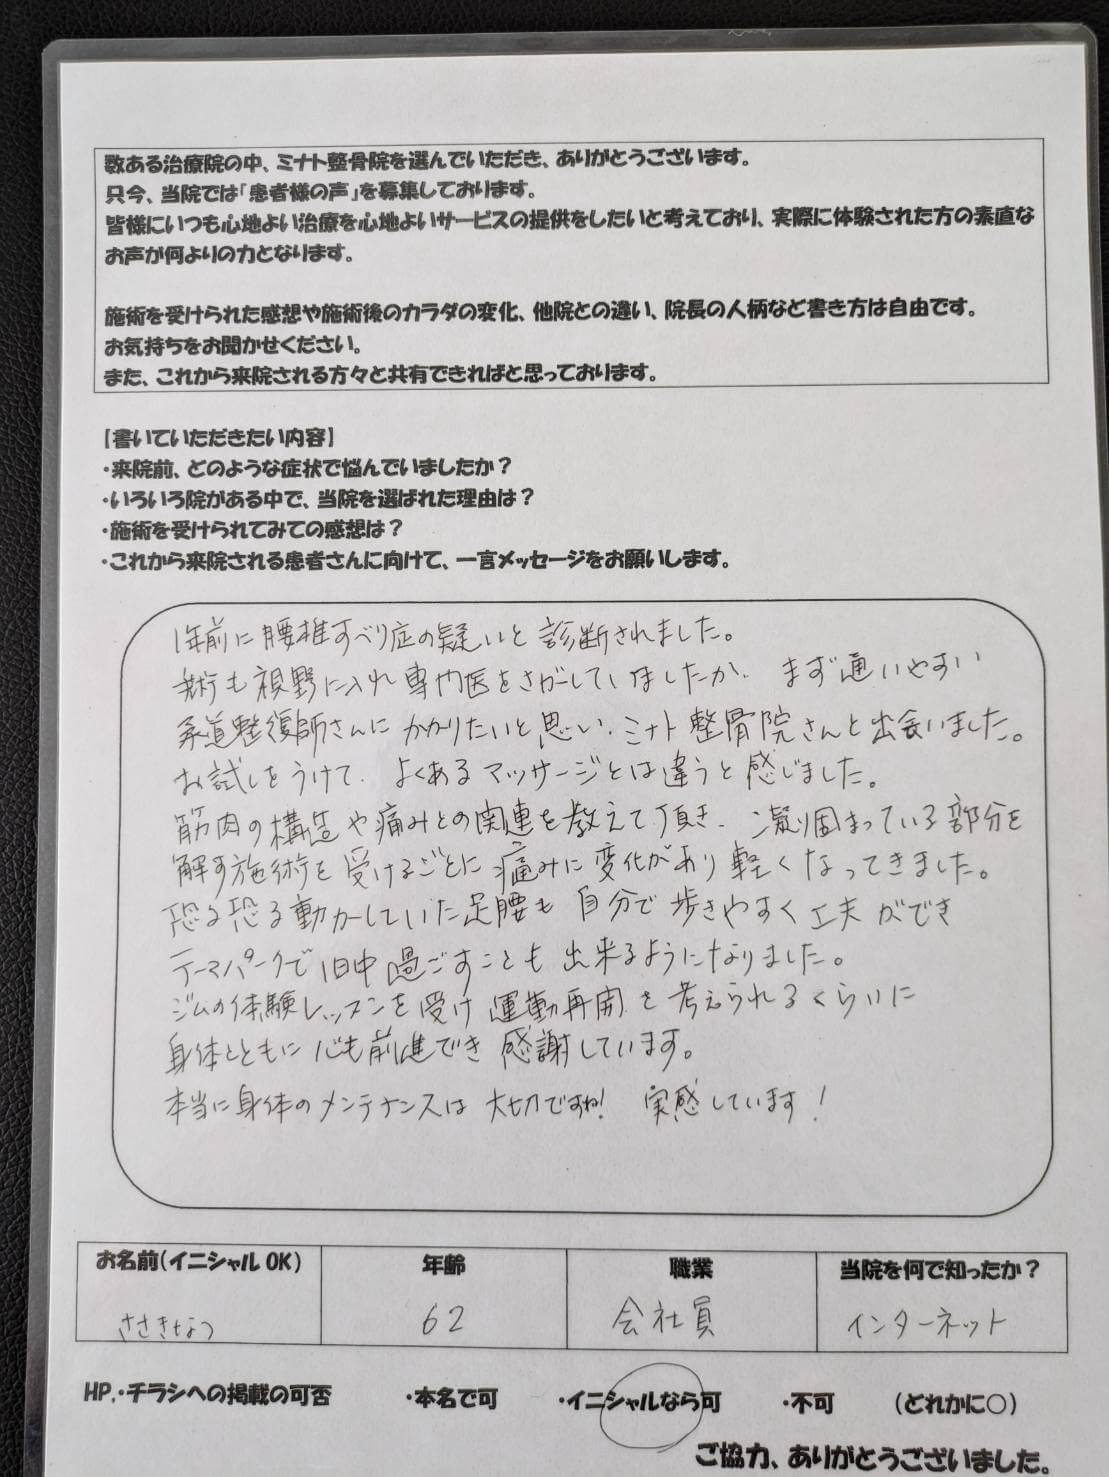 数ある治療院の中、ミナト整骨院を選んでいただき、ありがとうございます。
只今、当院では「患者様の声」を募集しております。
皆様にいつも心地よい治療を心地よいサービスの提供をしたいと考えており、実際に体験された方の素直な
お声が何よりの力となります。
施術を受けられた感想や施術後のカラダの変化、他院との違い、院長の人柄など書き方は自由です。
お気持ちをお聞かせください。
また、これから来院される方々と共有できればと思っております。
【書いていただきたい内容】
・来院前、どのような症状で悩んでいましたか？
・いろいろ院がある中で、当院を選ばれた理由は？
・施術を受けられてみての感想は？
・これから来院される患者さんに向けて、一言メッセージをお願いします。
1年前に腰椎すべり症の疑いと診断されました。
手術も視野に入れ専門医をさがしていましたが、まず通いやすい
柔道整復師さんにかかりたいと思い、ミナト整骨院さんと出会いました。
お試しをうけて、よくあるマッサージとは違うと感じました。
筋肉の構造や痛みとの関連を教えて頂き、凝り固まっている部分を
解す施術を受けるごとに痛みに変化があり軽くなってきました。
恐る恐る動かしていた足腰も自分で歩きやすく工夫ができ
テーマパークで1日中過ごすことも出来るようになりました。
ジムの体験レッスンを受け運動再開を考えられるくらいに
身体とともに心も前進でき感謝しています。
本当に身体のメンテナンスは大切ですね! 実感しています!
お名前（イニシャル OK） 年齢 職業 当院を何で知ったか？
62 会社員 インターネット
HP,・チラシへの掲載の可否 ・本名で可 ・イニシャルなら可 ・不可 （どれかに○）
ご協力、ありがとうございました。